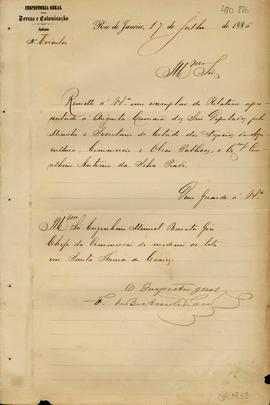 INSPECTORIA GERAL
DAS
Terras e Colonisação
Rio de Janeiro, 27 de Julho de 1886
Circular
Illmo Sr.
Remetto a V. um exemplar do Relatorio apre-
sentado á Augusta Camara dos Snrs Deputados pelo
Ministro e Secretario de Estado dos Negocios da Agri-
cultura, Commercio e Obras Publicas, o Con-
selheiro Antonio da Silva Prado.
Deus Guarde a V.
Illmo Sr. Engenheiro Manuel Barata
Chefe da Commissão de medição de lotes
em Santa
O Inspector geral